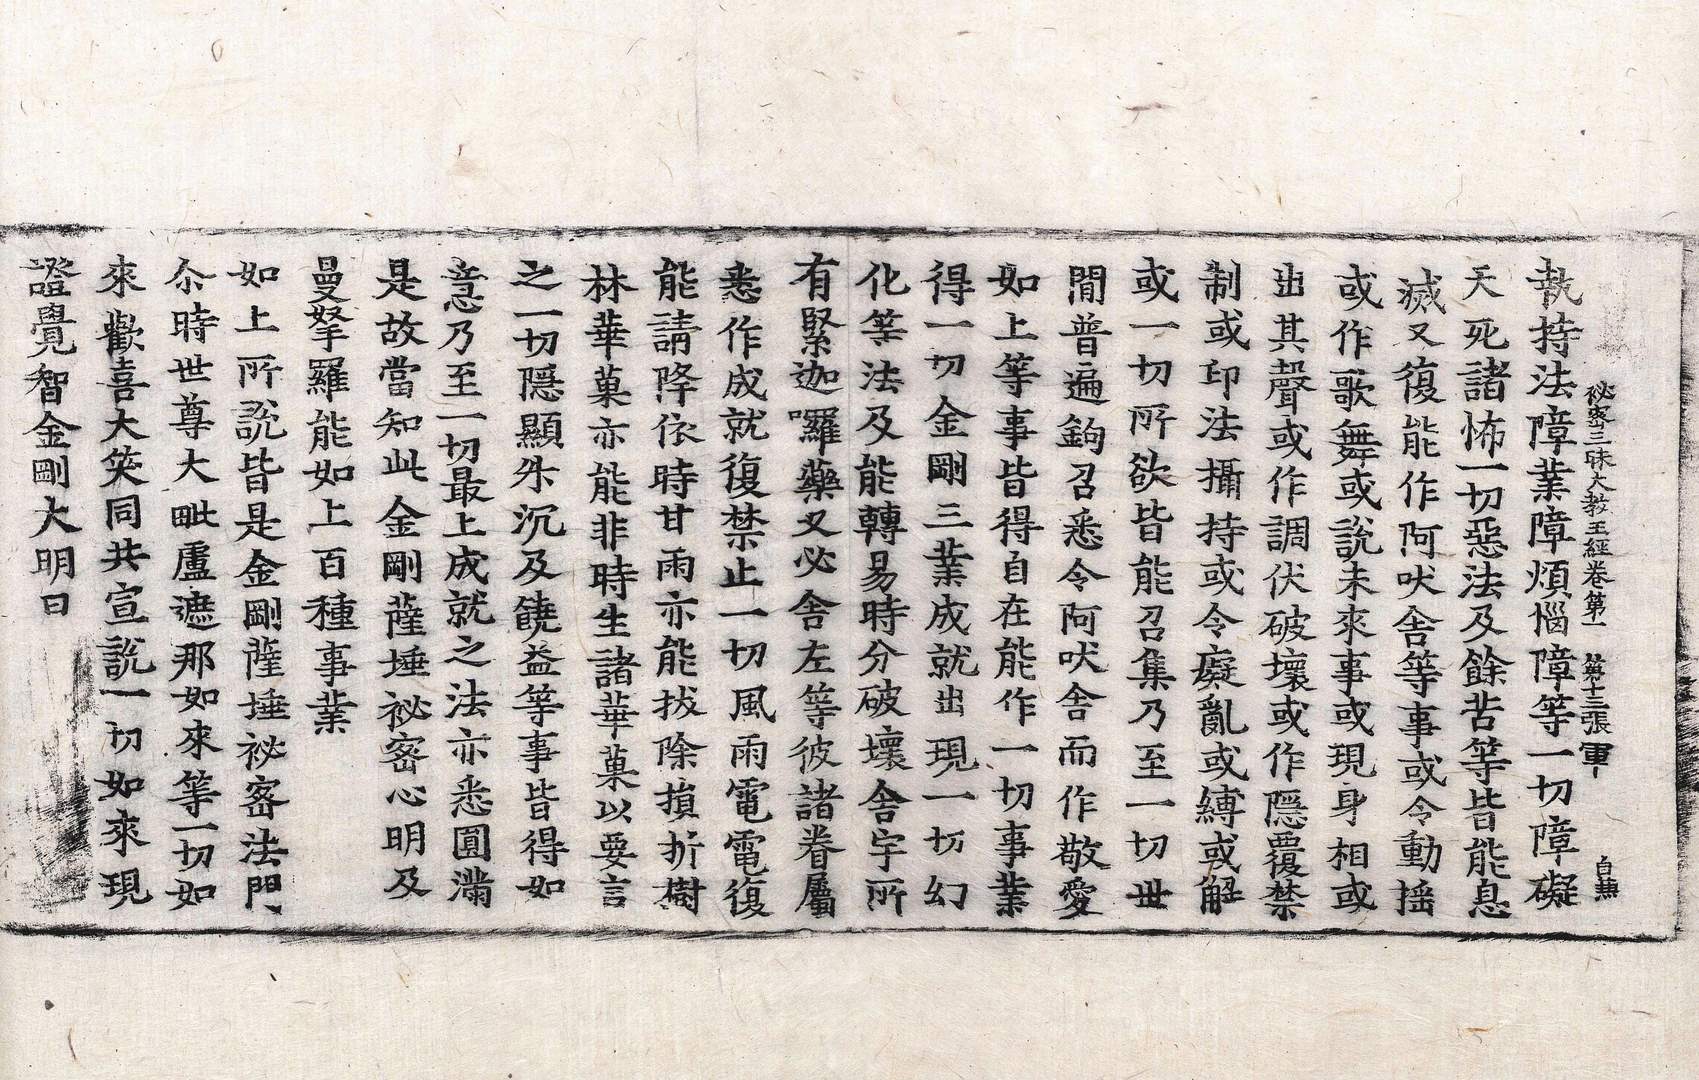 秘密三昧大教王經卷第一 第十三張 軍
執持法障業障煩惱障等一切障礙
夭死諸怖一切惡法及餘苦等皆能息
滅又復能作阿吠舍等事或令動搖
或作歌舞或說未來事或現身相或
出其聲或作調伏破壞或作隱覆禁
制或印法攝持或令癡亂或縛或解
或一切所欲皆能召集乃至一切世
間普遍鉤召悉令阿吠舍而作敬愛
如上等事皆得自在能作一切事業
得一切金剛三業成就出現一切幻
化等法及能轉易時分破壞舍宇所
有緊迦囉藥叉必舍左等彼諸眷屬
悉作成就復禁止一切風雨電電復
能請降依時甘雨亦能拔除損折樹
林華菓亦能非時生諸華菓以要言
之一切隱顯㳍沉及饒益等事皆得如
意乃至一切最上成就之法亦悉圓滿
是故當知此金剛薩埵祕密心明及
曼拏羅能如上百種事業
如上所說皆是金剛薩埵祕密法門
尒時世尊大毗盧遮那如來等一切如
來歡喜大笑同共宣說一切如來現
證覺智金剛大明曰